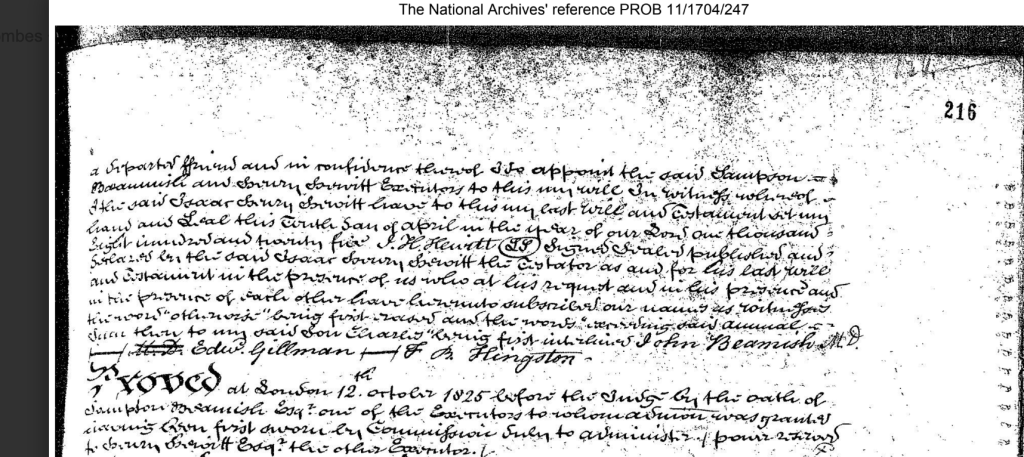 The National Archives' reference PROB 11/1704/247
mbes
216
a departed ffriend and in confidence thereof I do appoint the said Sampson
Beamish and Henry Hewitt Executors to this my will In witness whereof
I the said Isaac Henry Hewitt have to this my last will and Testament set my
hand and Seal this Tenth day of April in the year of our Lord one thousand
Eight hundred and twenty five I. H. Hewitt (LS) Signed Sealed published and
declared by the said Isaac Henry Hewitt the Testator as and for his last will
and Testament in the presence of us who at his request and in his presence and
in the presence of each other have hereunto subscribed our names as witnesses
the word "otherwise" being first erased and the words "exceeding said annual
Sum then to my said Son Charles" being first interlined John Beamish M.D.
Edwd. Gillman – Hingston
Proved at London 12th. October 1825 before the Judge by the oath of
Sampson Beamish Esqr. one of the Executors to whom admon was granted
having been first sworn by Commission duly to administer / power reserved
to Henry Hewitt Esqr. the other Executor. /